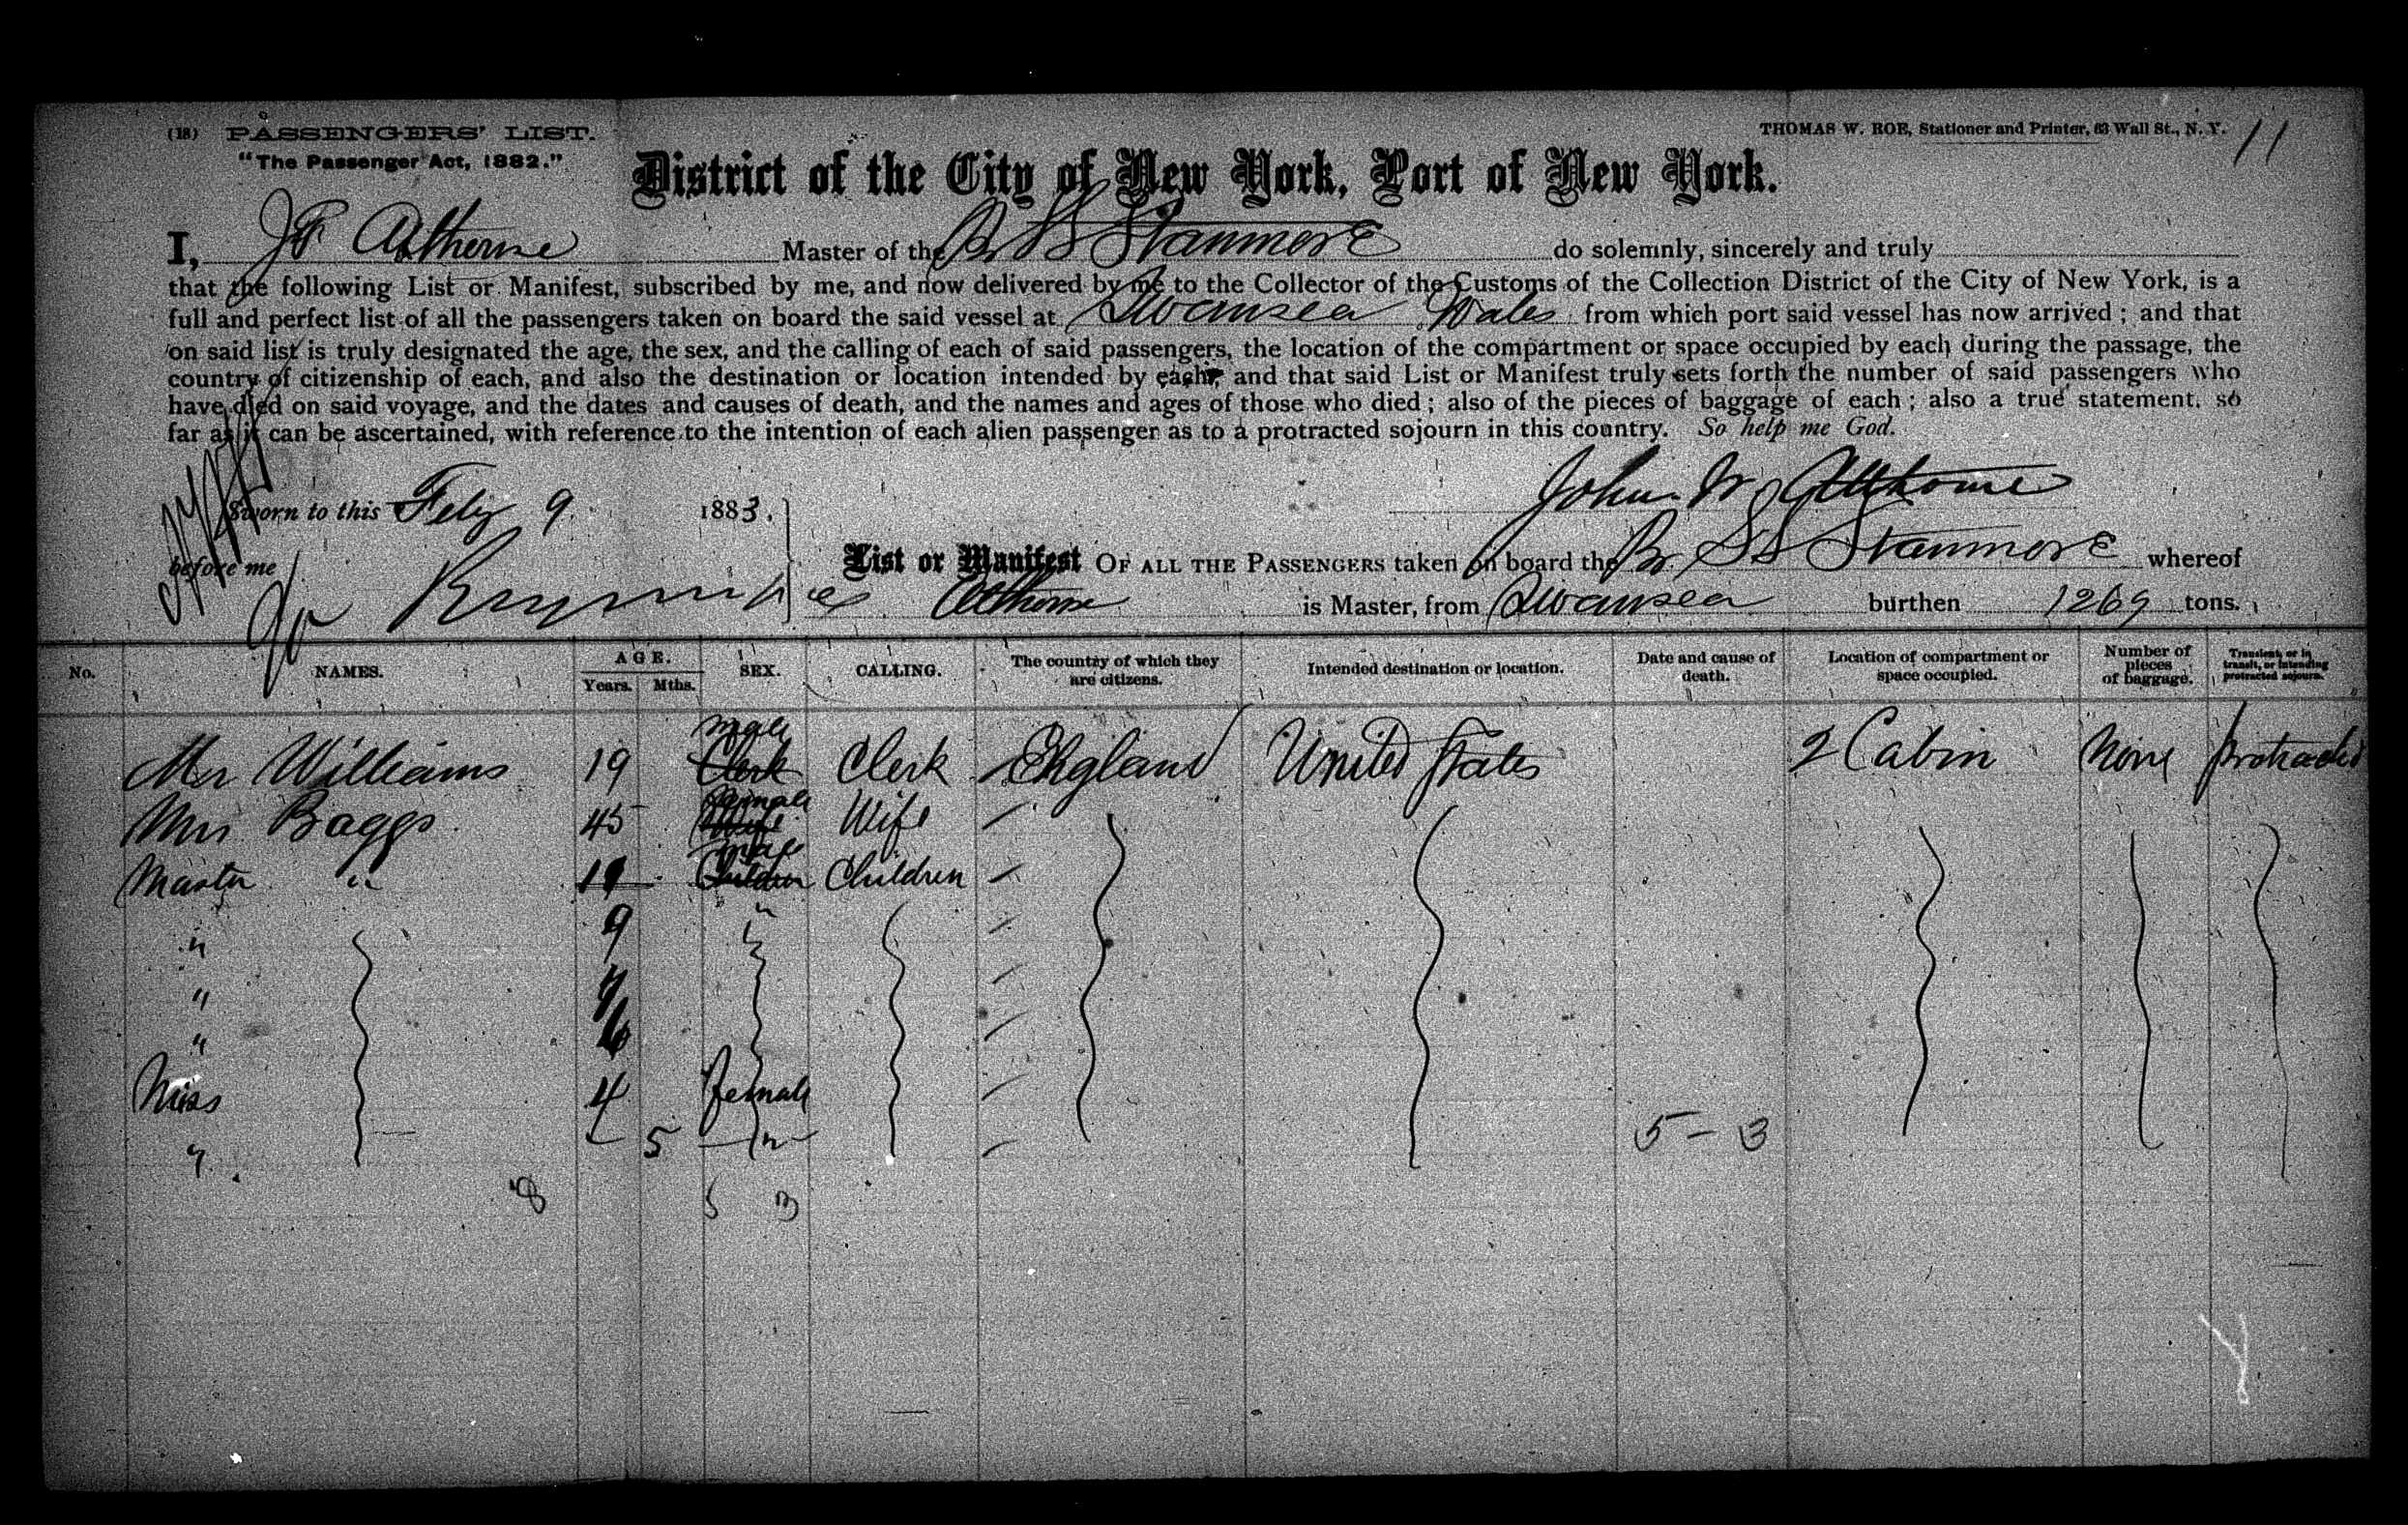 (18) PASSENGERS' LIST.
"The Passenger Act, 1882."
THOMAS W. ROE, Stationer and Printer, 63 Wall St., N. Y.
11
District of the City of New York, Port of New York.
I, Master of the Br SS Stanmore do solemnly, sincerely and truly
that the following List or Manifest, subscribed by me, and now delivered by me to the Collector of the Customs of the Collection District of the City of New York, is a
full and perfect list of all the passengers taken on board the said vessel at Swansea Wales from which port said vessel has now arrived; and that
on said list is truly designated the age, the sex, and the calling of each of said passengers, the location of the compartment or space occupied by each during the passage, the
country of citizenship of each, and also the destination or location intended by each; and that said List or Manifest truly sets forth the number of said passengers who
have died on said voyage, and the dates and causes of death, and the names and ages of those who died; also of the pieces of baggage of each; also a true statement, so
far as it can be ascertained, with reference to the intention of each alien passenger as to a protracted sojourn in this country. So help me God.
Sworn to this Feby 9 1883. John
before me
List or Manifest OF ALL THE PASSENGERS taken on board the Br SS Stanmore whereof
is Master, from Swansea burthen 1269 tons.
No. NAMES. AGE. Years. Mths. SEX. CALLING. The country of which they are citizens. Intended destination or location. Date and cause of death. Location of compartment or space occupied. Number of pieces of baggage. Transient, or in transit, or intending protracted sojourn.
Mr Williams 19 male Clerk Clerk England United States 2 Cabin None protracted
Mrs Baggs 45 female Wife Wife
Master " 11 male Children Children
" 9 "
" 7
" 6
Miss 4 female
" 5 " 5 - 3
8 5 3